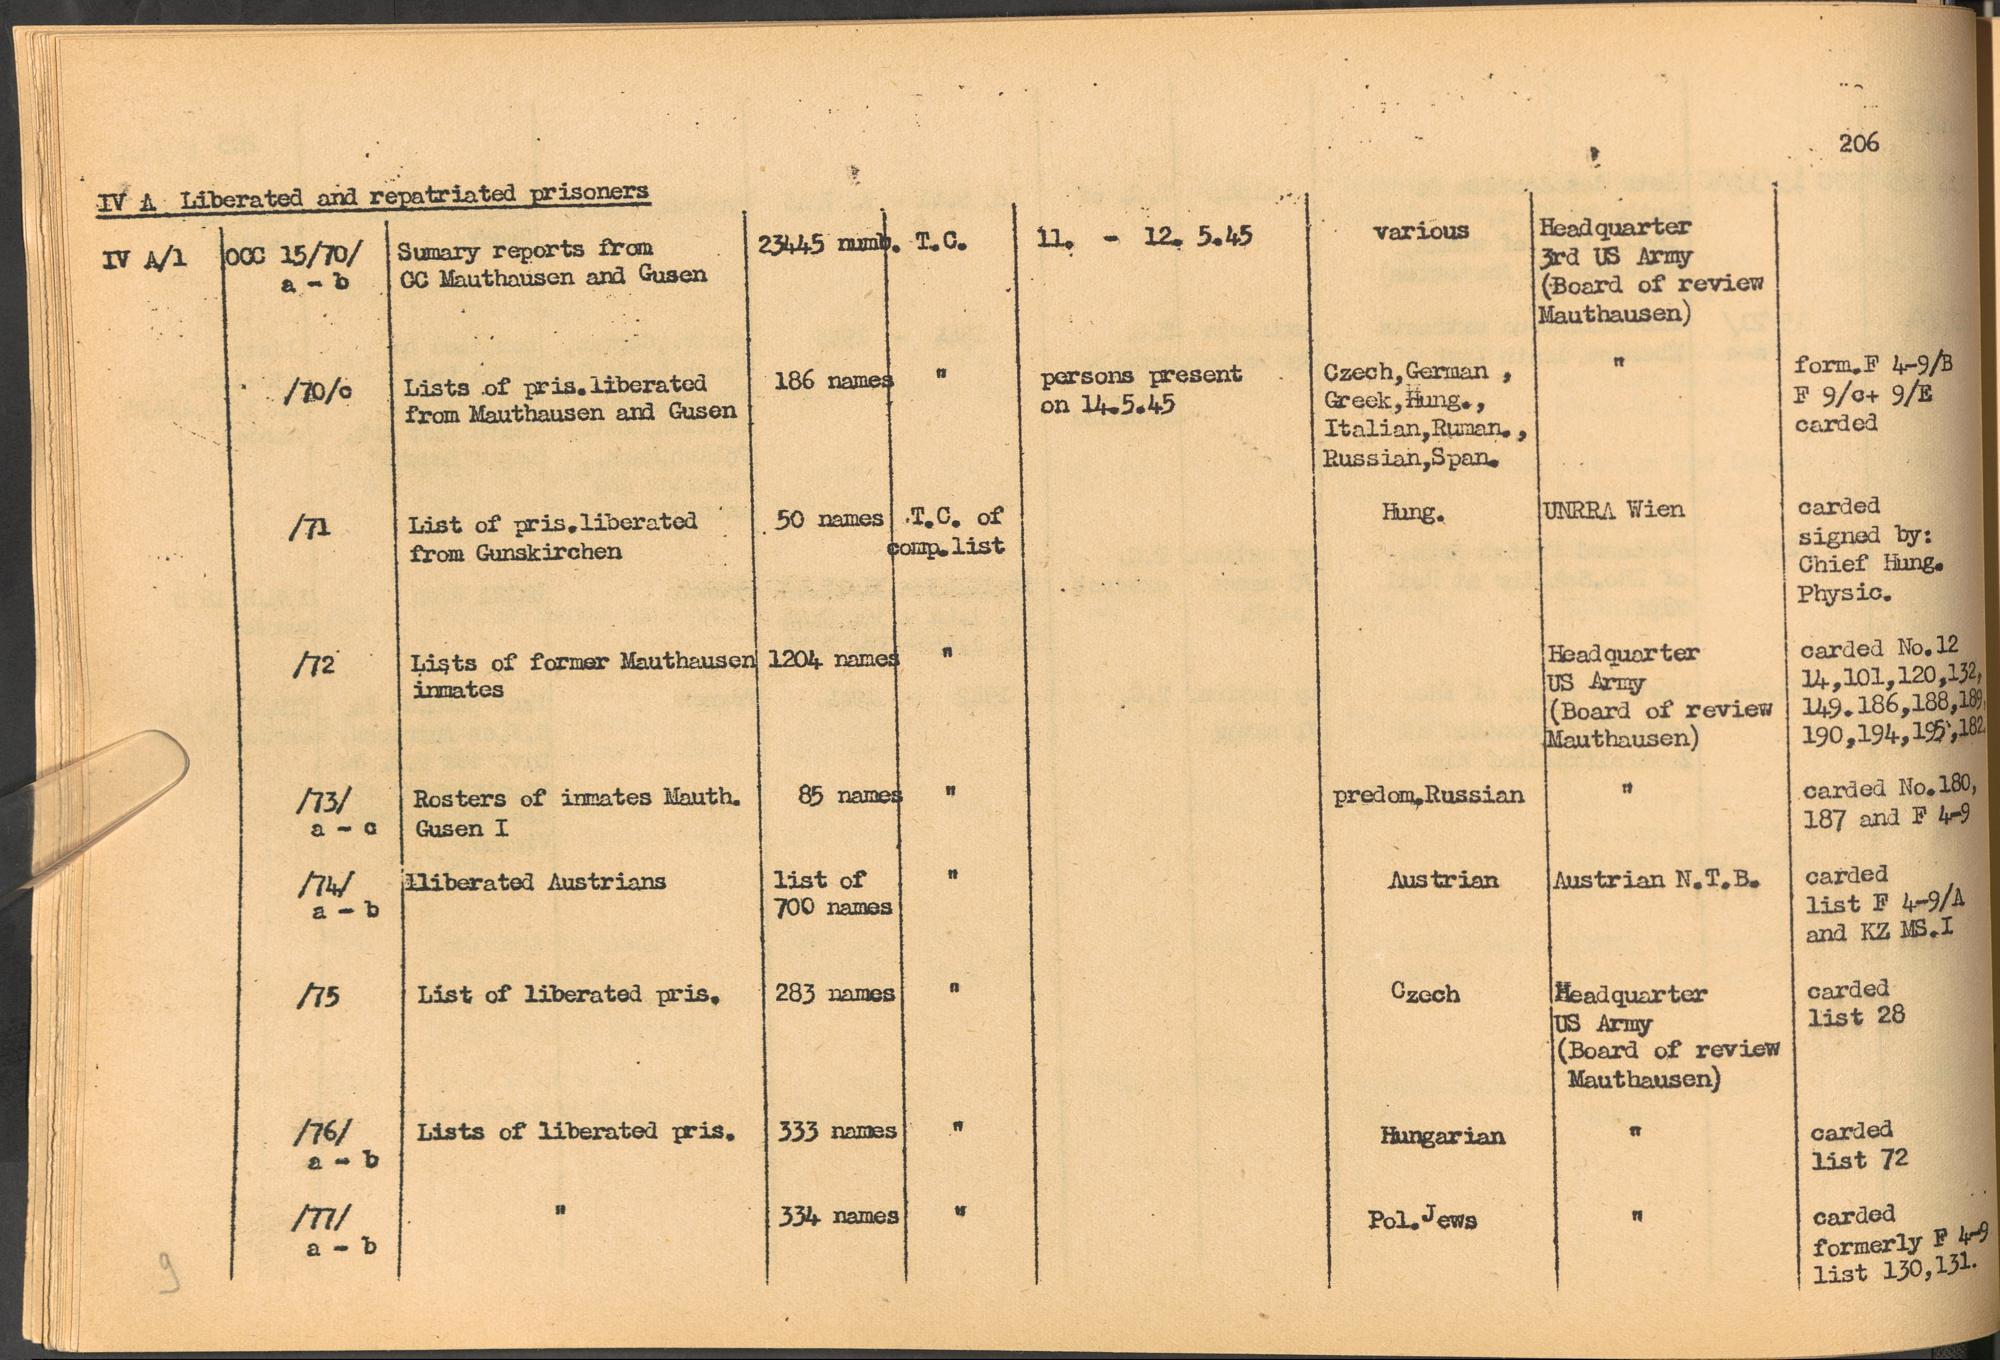 206
IV A Liberated and repatriated prisoners
IV A/1 OCC 15/70/ Sumary reports from 23445 numb. T.C. 11. - 12. 5.45 various Headquarter
a - b CC Mauthausen and Gusen 3rd US Army
(Board of review
Mauthausen)
/70/c Lists of pris.liberated 186 names " persons present Czech,German , " form.F 4-9/B
from Mauthausen and Gusen on 14.5.45 Greek,Hung., F 9/c+ 9/E
Italian,Ruman., carded
Russian,Span.
/71 List of pris.liberated 50 names T.C. of Hung. UNRRA Wien carded
from Gunskirchen comp.list signed by:
Chief Hung.
Physic.
/72 Lists of former Mauthausen 1204 names " Headquarter carded No.12
inmates US Army 14,101,120,132,
(Board of review 149.186,188,189,
Mauthausen) 190,194,195,182
/73/ Rosters of inmates Mauth. 85 names " predom.Russian " carded No.180,
a - c Gusen I 187 and F 4-9
/74/ liberated Austrians list of " Austrian Austrian N.T.B. carded
a - b 700 names list F 4-9/A
and KZ MS.I
/75 List of liberated pris. 283 names " Czech Headquarter carded
US Army list 28
(Board of review
Mauthausen)
/76/ Lists of liberated pris. 333 names " Hungarian " carded
a - b list 72
/77/ " 334 names " Pol.Jews " carded
a - b formerly F 4-9
list 130,131.
9